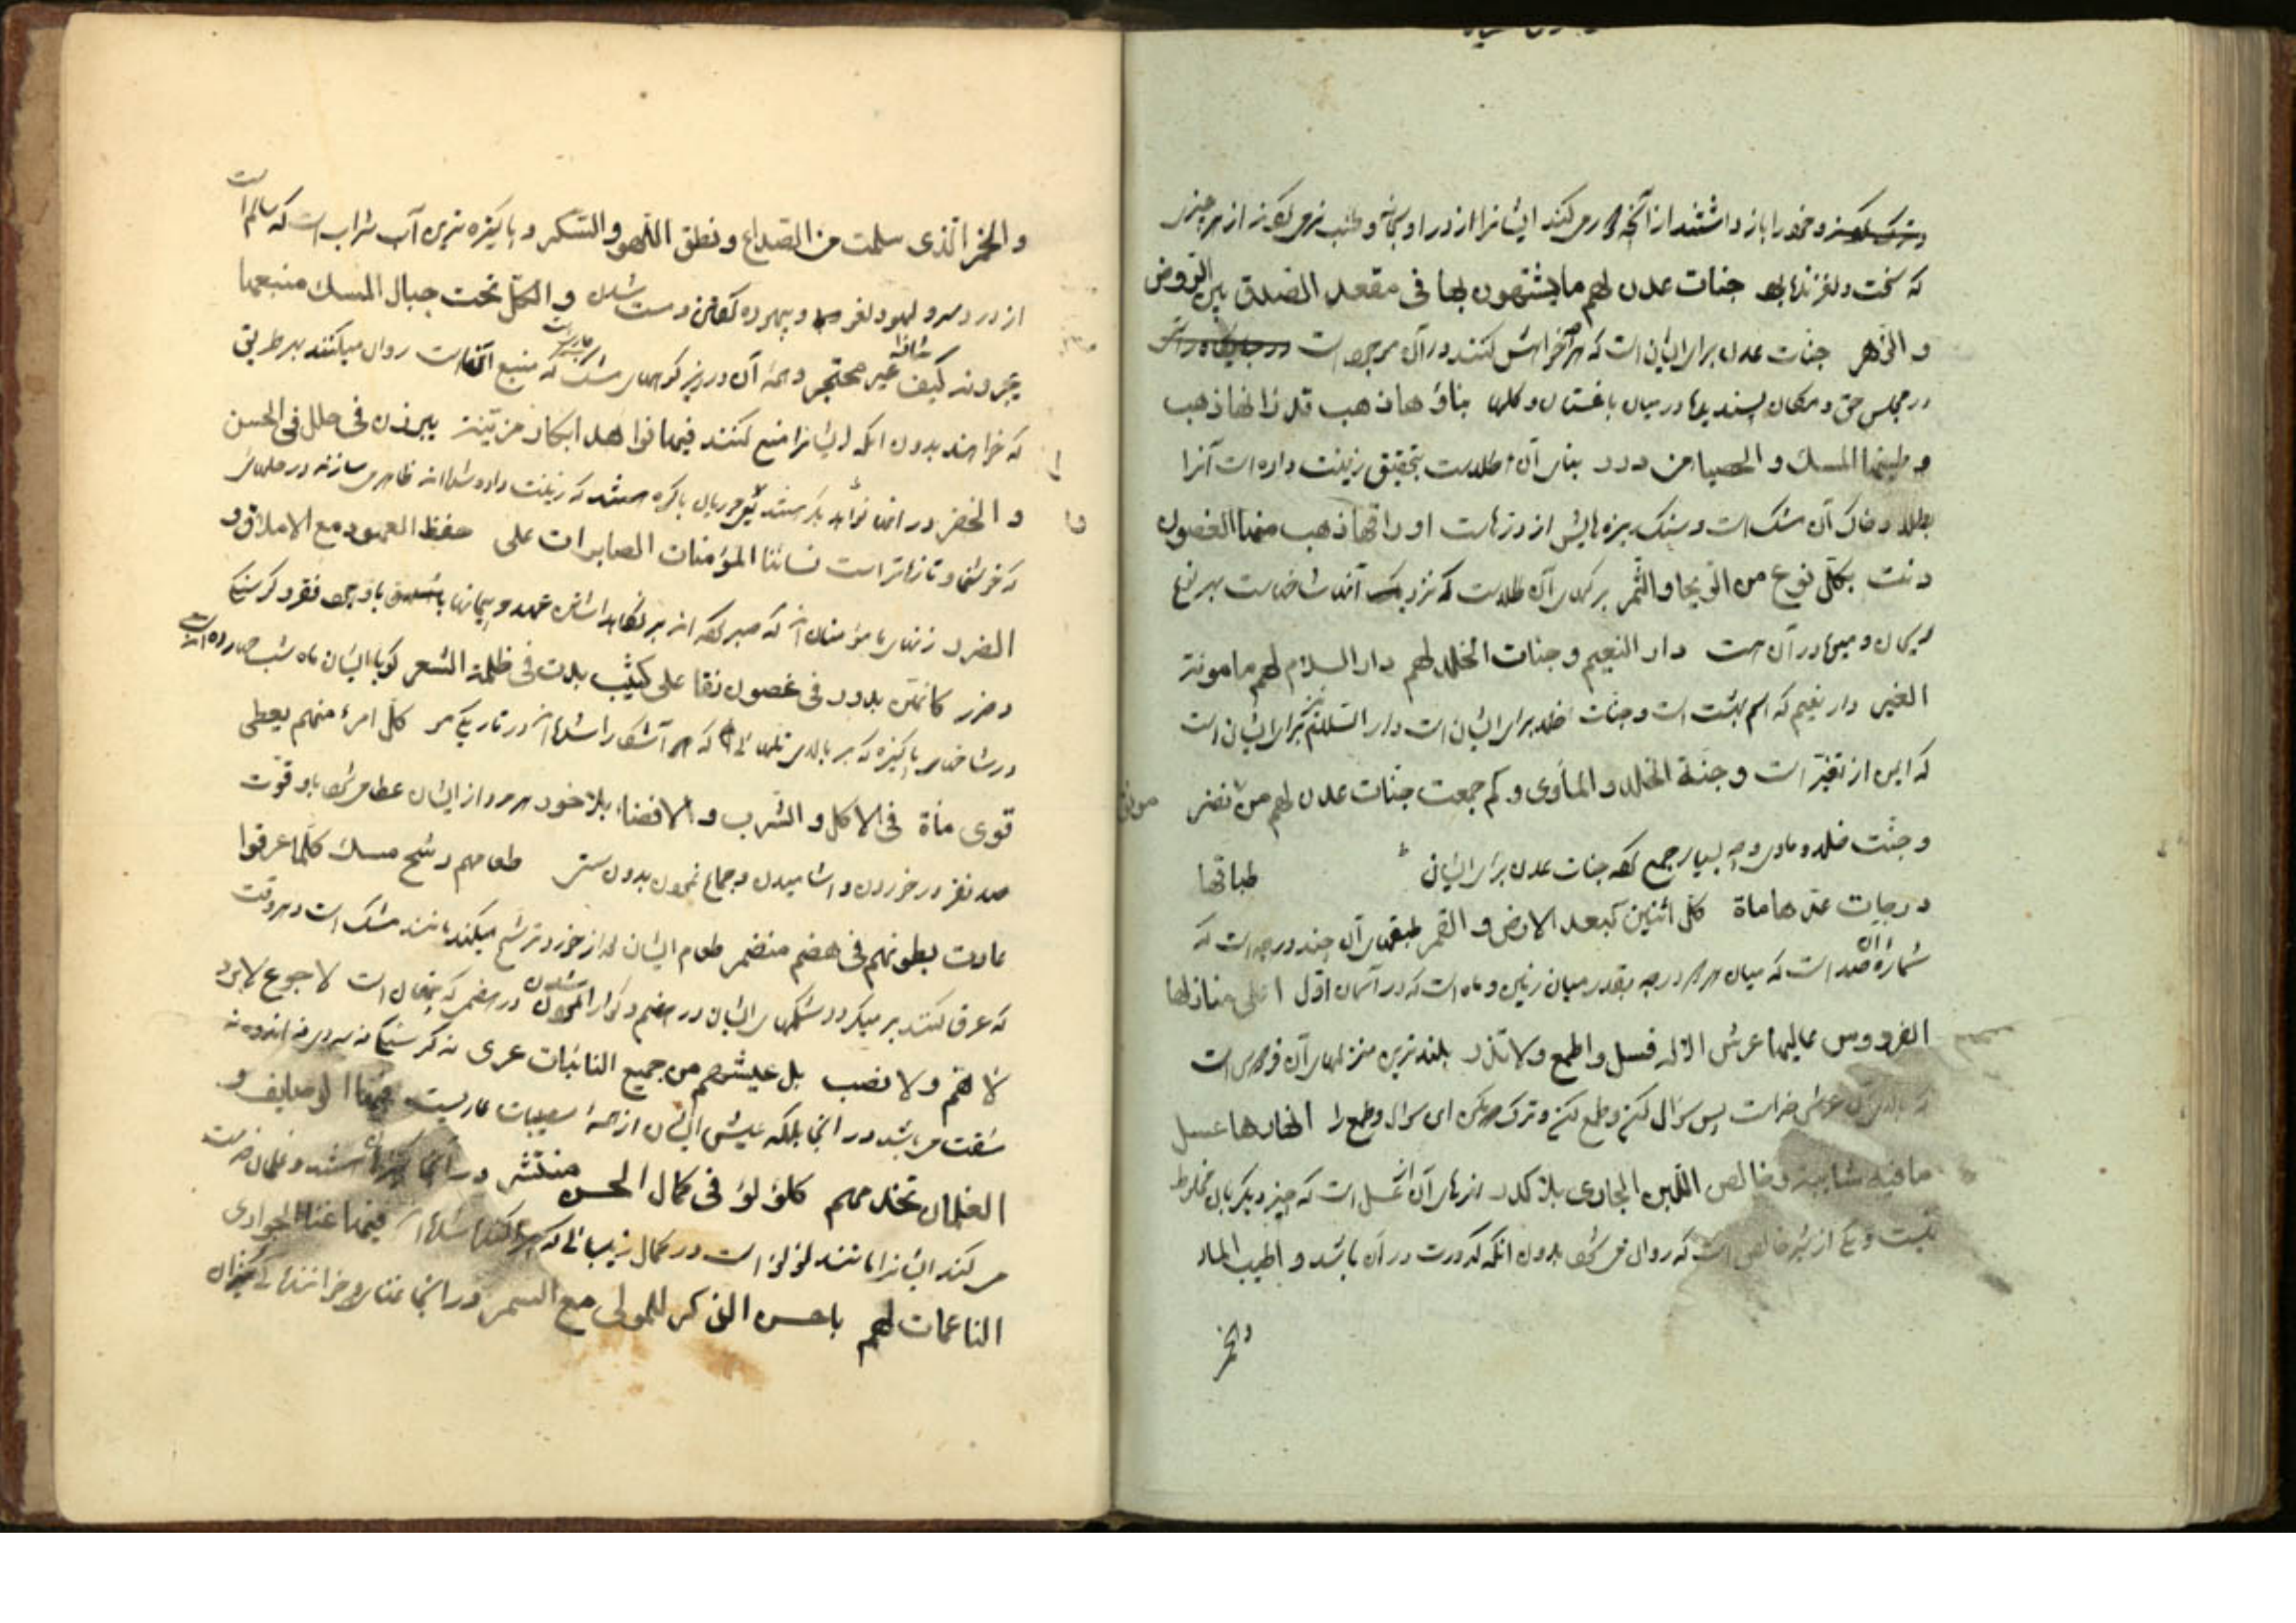 و خود را باز داشتند از آنچه دور می کند ایشانرا از در او سبحانه و طلب نمی کردند از هر چیزی
که سخت و لغزنده بود جنات عدن لهم ما یشتهون بها فی مقعد الصدق بین الروض
و الزهر جنات عدن برای ایشان است که هر چه خواهش کنند در آن موجود است
در مجلس حق و مکان پسندیده در میان باغستان و گلها بناؤها ذهب قد زانها ذهب
و طینها المسک و الحصبا من درر بنای آن طلاست بتحقیق زینت داده است آنرا
طلا و خاک آن مشک است و سنگ ریزه هایش از درهاست اوراقها ذهب منها الغصون
دنت بکل نوع من الریحان و الثمر برگهای آن طلاست که نزدیک آمده شاخهاست بهر نوع
ریحان و میوه در آن است دار النعیم و جنات الخلد لهم دار السلام لهم مامونة
الغیر دار نعیم که اسم بهشت است و جنات خلد برای ایشان است و دار السلام نیز برای ایشان است
که ایمن از تغیر است و جنة الخلد و المأوی و کم جمعت جنات عدن لهم من مونق نضر
و جنت خلد و ماوی و چه بسیار جمع کرده جنات عدن برای ایشان طباقها
درجات عدها ماة کل اثنین کبعد الارض و القمر طبقهای آن چند درجه است که
شماره آن صد است که میان هر دو درجه بقدر میان زمین و ماه است که در آسمان اول اعلی منازلها
الفردوس عالیها عرش الاله فسل و اطمع و لا تذر بلندترین منزلهای آن فردوس است
که بالای آن عرش خداست پس سؤال کن و طمع کن و ترک مکن ای سؤال و طمع را انهارها عسل
ما فیه شایبة و خالص اللبن الجاری بلا کدر نهرهای آن عسل است که چیز دیگر بان مخلوط
نیست و یکی از شیر خالص است که روان می شود بدون انکه کدورت در آن باشد و اطیب الماء
و الخمر
و الخمر الذی سلمت من الصداع و نطق اللهو و السکر و پاکیزه ترین آب شراب است که سالم است
از درد سر و لهو و لغو و بیهوده گفتن و مست شدن و الکل تحت جبال المسک منبعها
یجرونه کیف شاؤا غیر محتجر و همه آن در زیر کوههای مشک که منبع آنهاست روان میکنند بهر طریق
که خواهند بدون انکه ایشانرا منع کنند فیها نواهد ابکار مزینة یبرزن فی حلل فی الحسن
و الخفر در آن باکره هستند که زینت داده شده اند ظاهر می سازند در حلهای
که خوشنما و تازه تر است نسائنا المؤمنات الصابرات علی حفظ العهود مع الاملاق و
الضرر زنهای با مؤمنان آنکه صبر کرده اند بر نگاهداشتن عهد و پیمانها با وجود فقر و گرسنگی
و ضرر کانهن بدور فی غصون نقا علی کثیب بدت فی ظلمة الشعر گویا ایشان ماه شب چهارده اند
در شاخهای پاکیزه که بر بالای تلهائی که آشکارا شده اند در تاریکی مو کل امرء منهم یعطی
قوی ماة فی الاکل و الشرب و الافضاء بلا خور هر مرد از ایشان عطا می شود باو قوت
صد نفر در خوردن و اشامیدن و جماع نمودن بدون سستی طعامهم رشح مسک کلما عرقوا
عادت بطونهم فی هضم منضمر طعام ایشان که از خود ترشح میکند مانند مشک است و هر وقت
که عرق کنند بر میگردد شکمهای ایشان در هضم و گوارا شدن لا جوع لا برد
لا هم و لا نصب بل عیشهم من جمیع النائبات عری نه گرسنگی نه سردی نه اندوه نه
مشقت می باشد در انجا بلکه عیش ایشان از همه مصیبات عاریست فیها الوصایف و
الغلمان تخدمهم کلؤلؤ فی کمال الحسن منتثر در آنجا کنیزان هستند و غلمان خدمت
می کنند ایشانرا مانند لؤلؤ است در کمال زیبائی که پراکنده شده اند فیها غناء الجواری
الناعمات لهم باحسن الذکر للمولی مع السمر در انجا غنا و خوانندگی کنیزان